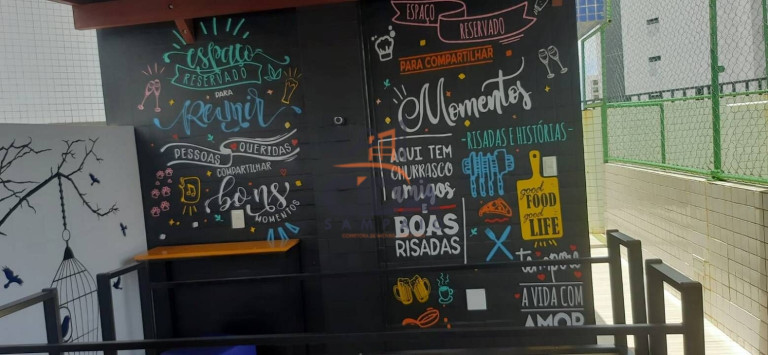 espaço
RESERVADO
PARA
Reunir
PESSOAS QUERIDAS
COMPARTILHAR
bons
MOMENTOS
ESPAÇO
RESERVADO
PARA COMPARTILHAR
Momentos
-RISADAS E HISTÓRIAS-
AQUI TEM
CHURRASCO
amigos
E
BOAS
RISADAS
good
FOOD
good
LIFE
tempere
A VIDA COM
AMOR